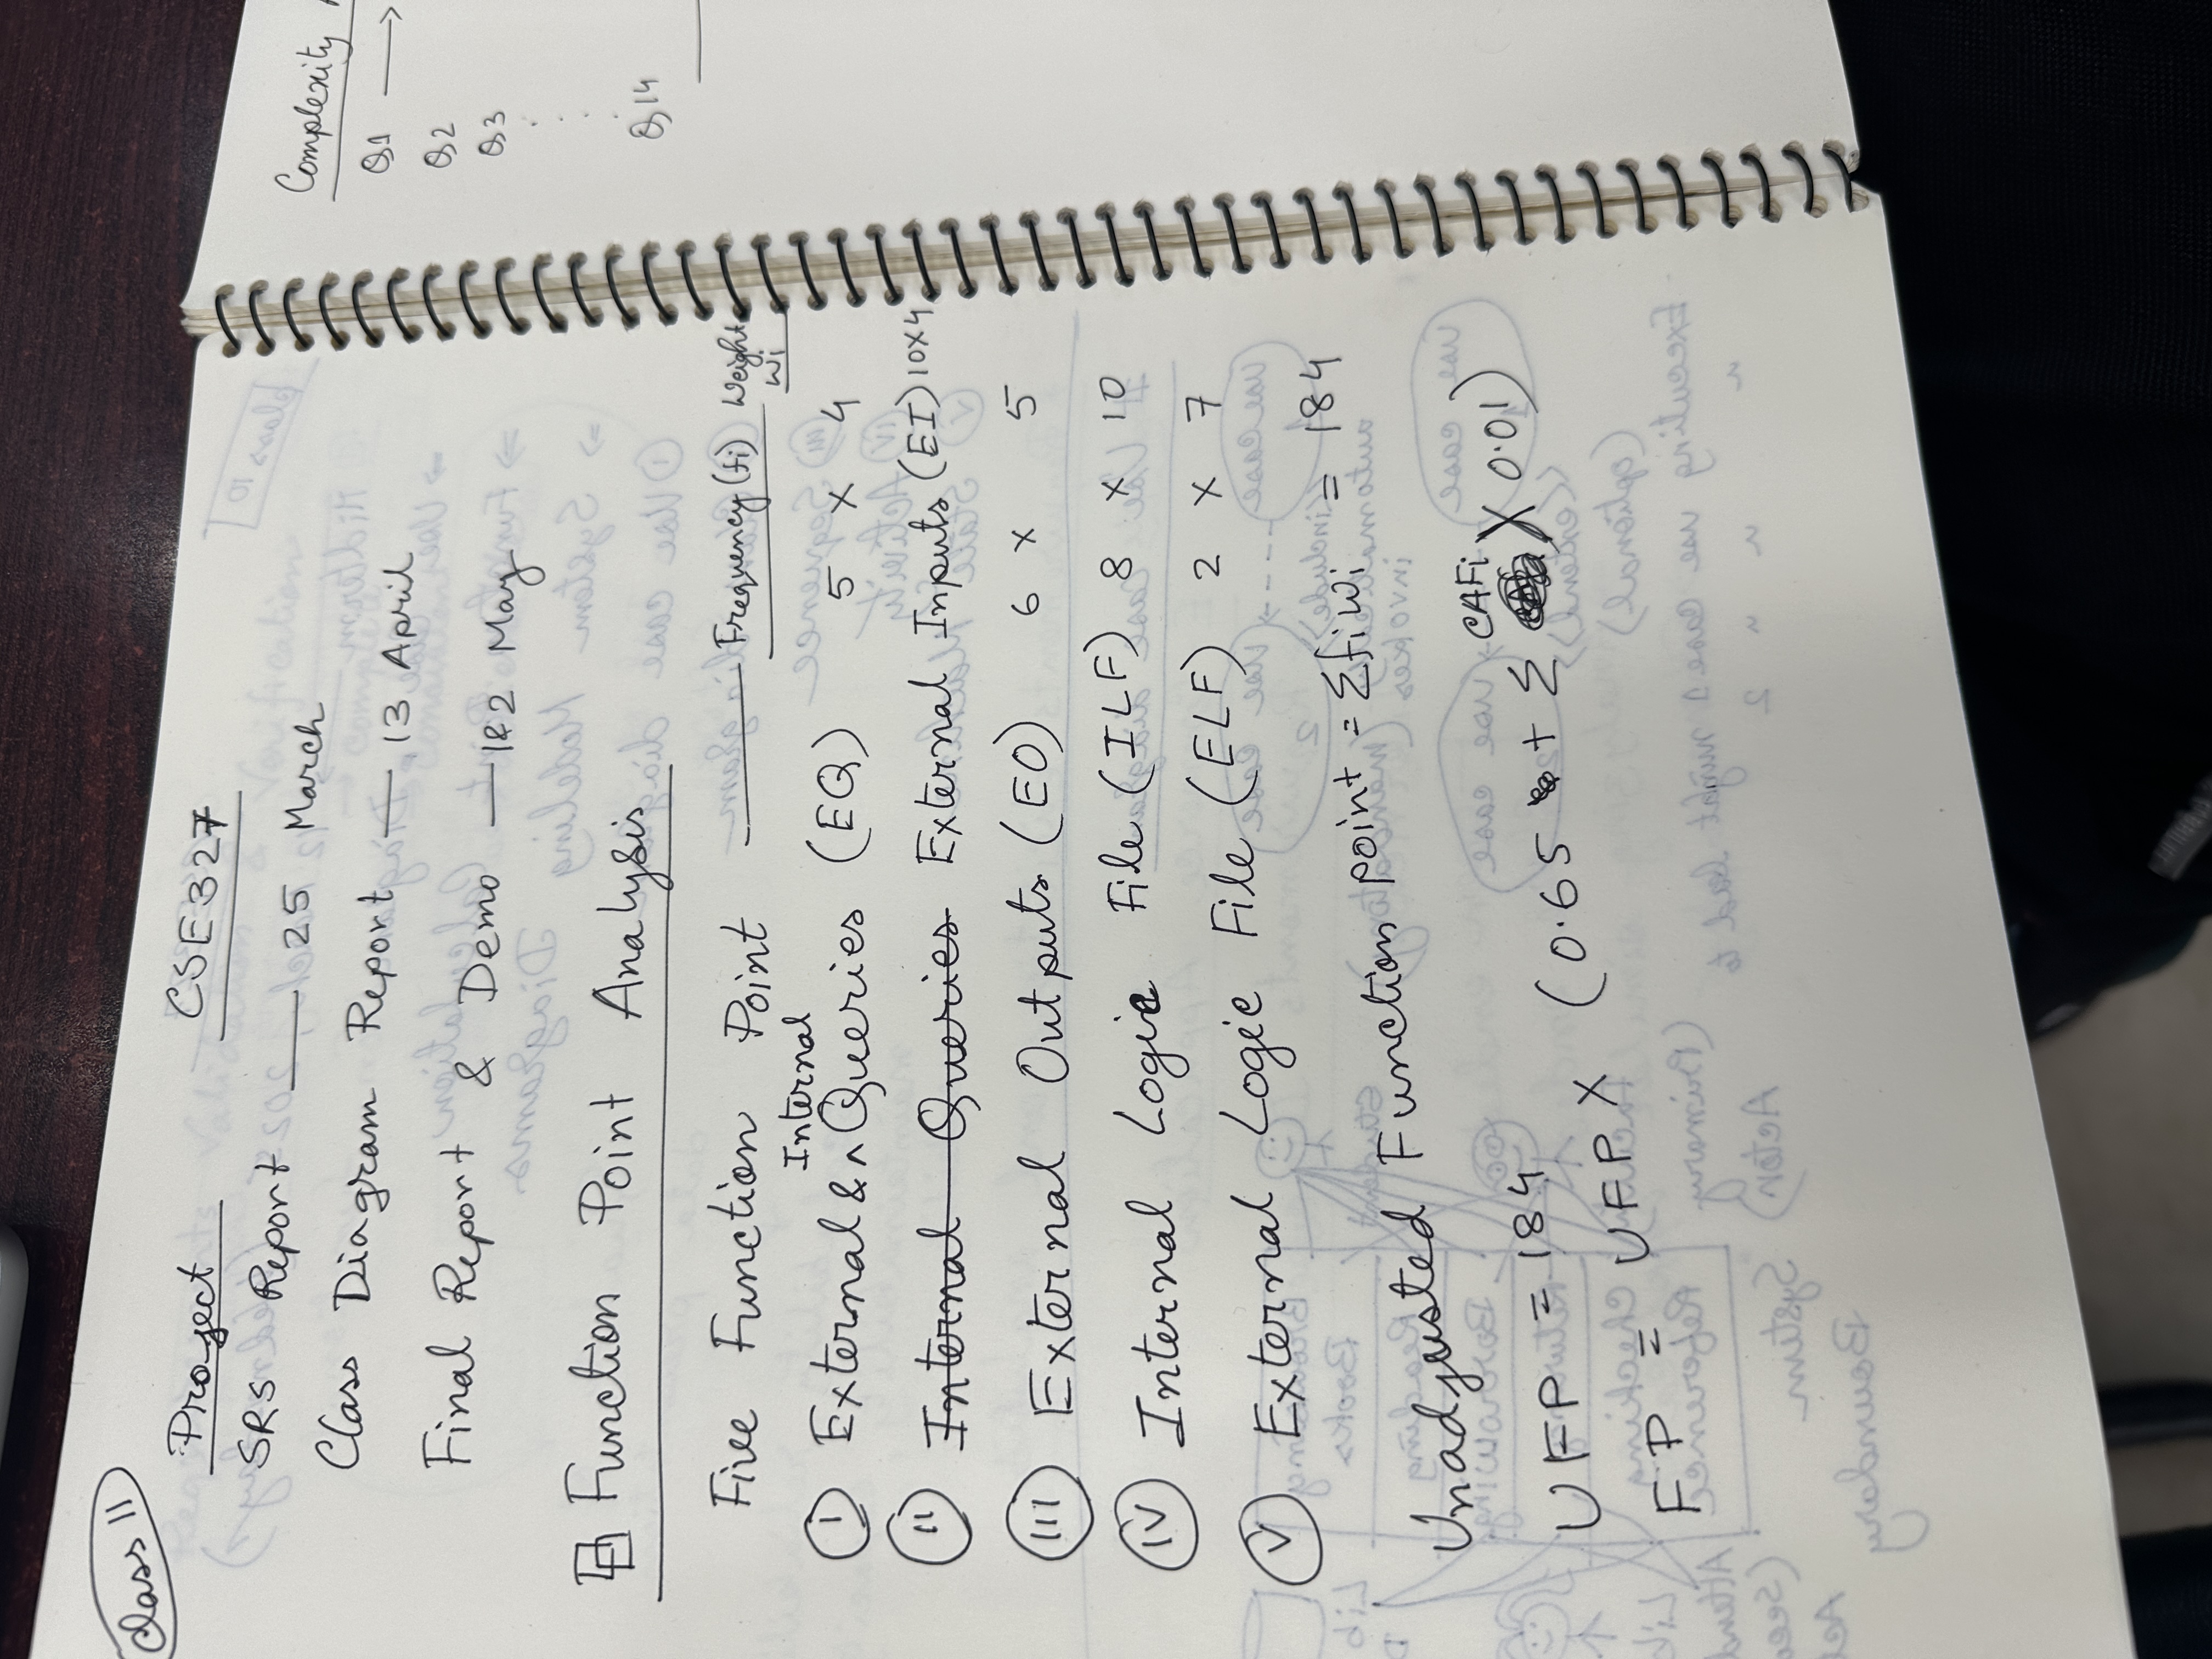 Class 11
Project CSE327
SRS Report — 25 March
Class Diagram Report — 13 April
Final Report & Demo — 1&2 May
Function Point Analysis
Five Function Point — Frequency (fi) Weight wi
Internal
I External & ^ Queries (EQ) 5 x 4
II Internal Queries External Inputs (EI) 10x4
III External Outputs (EO) 6 x 5
IV Internal Logic File (ILF) 8 x 10
V External Logic File (ELF) 2 x 7
Unadjusted Function point = Σfiwi = 184
UFP = 184
FP = UFP x (0.65 + Σ CAFi x 0.01)
Complexity
Q1 →
Q2
Q3
Q14